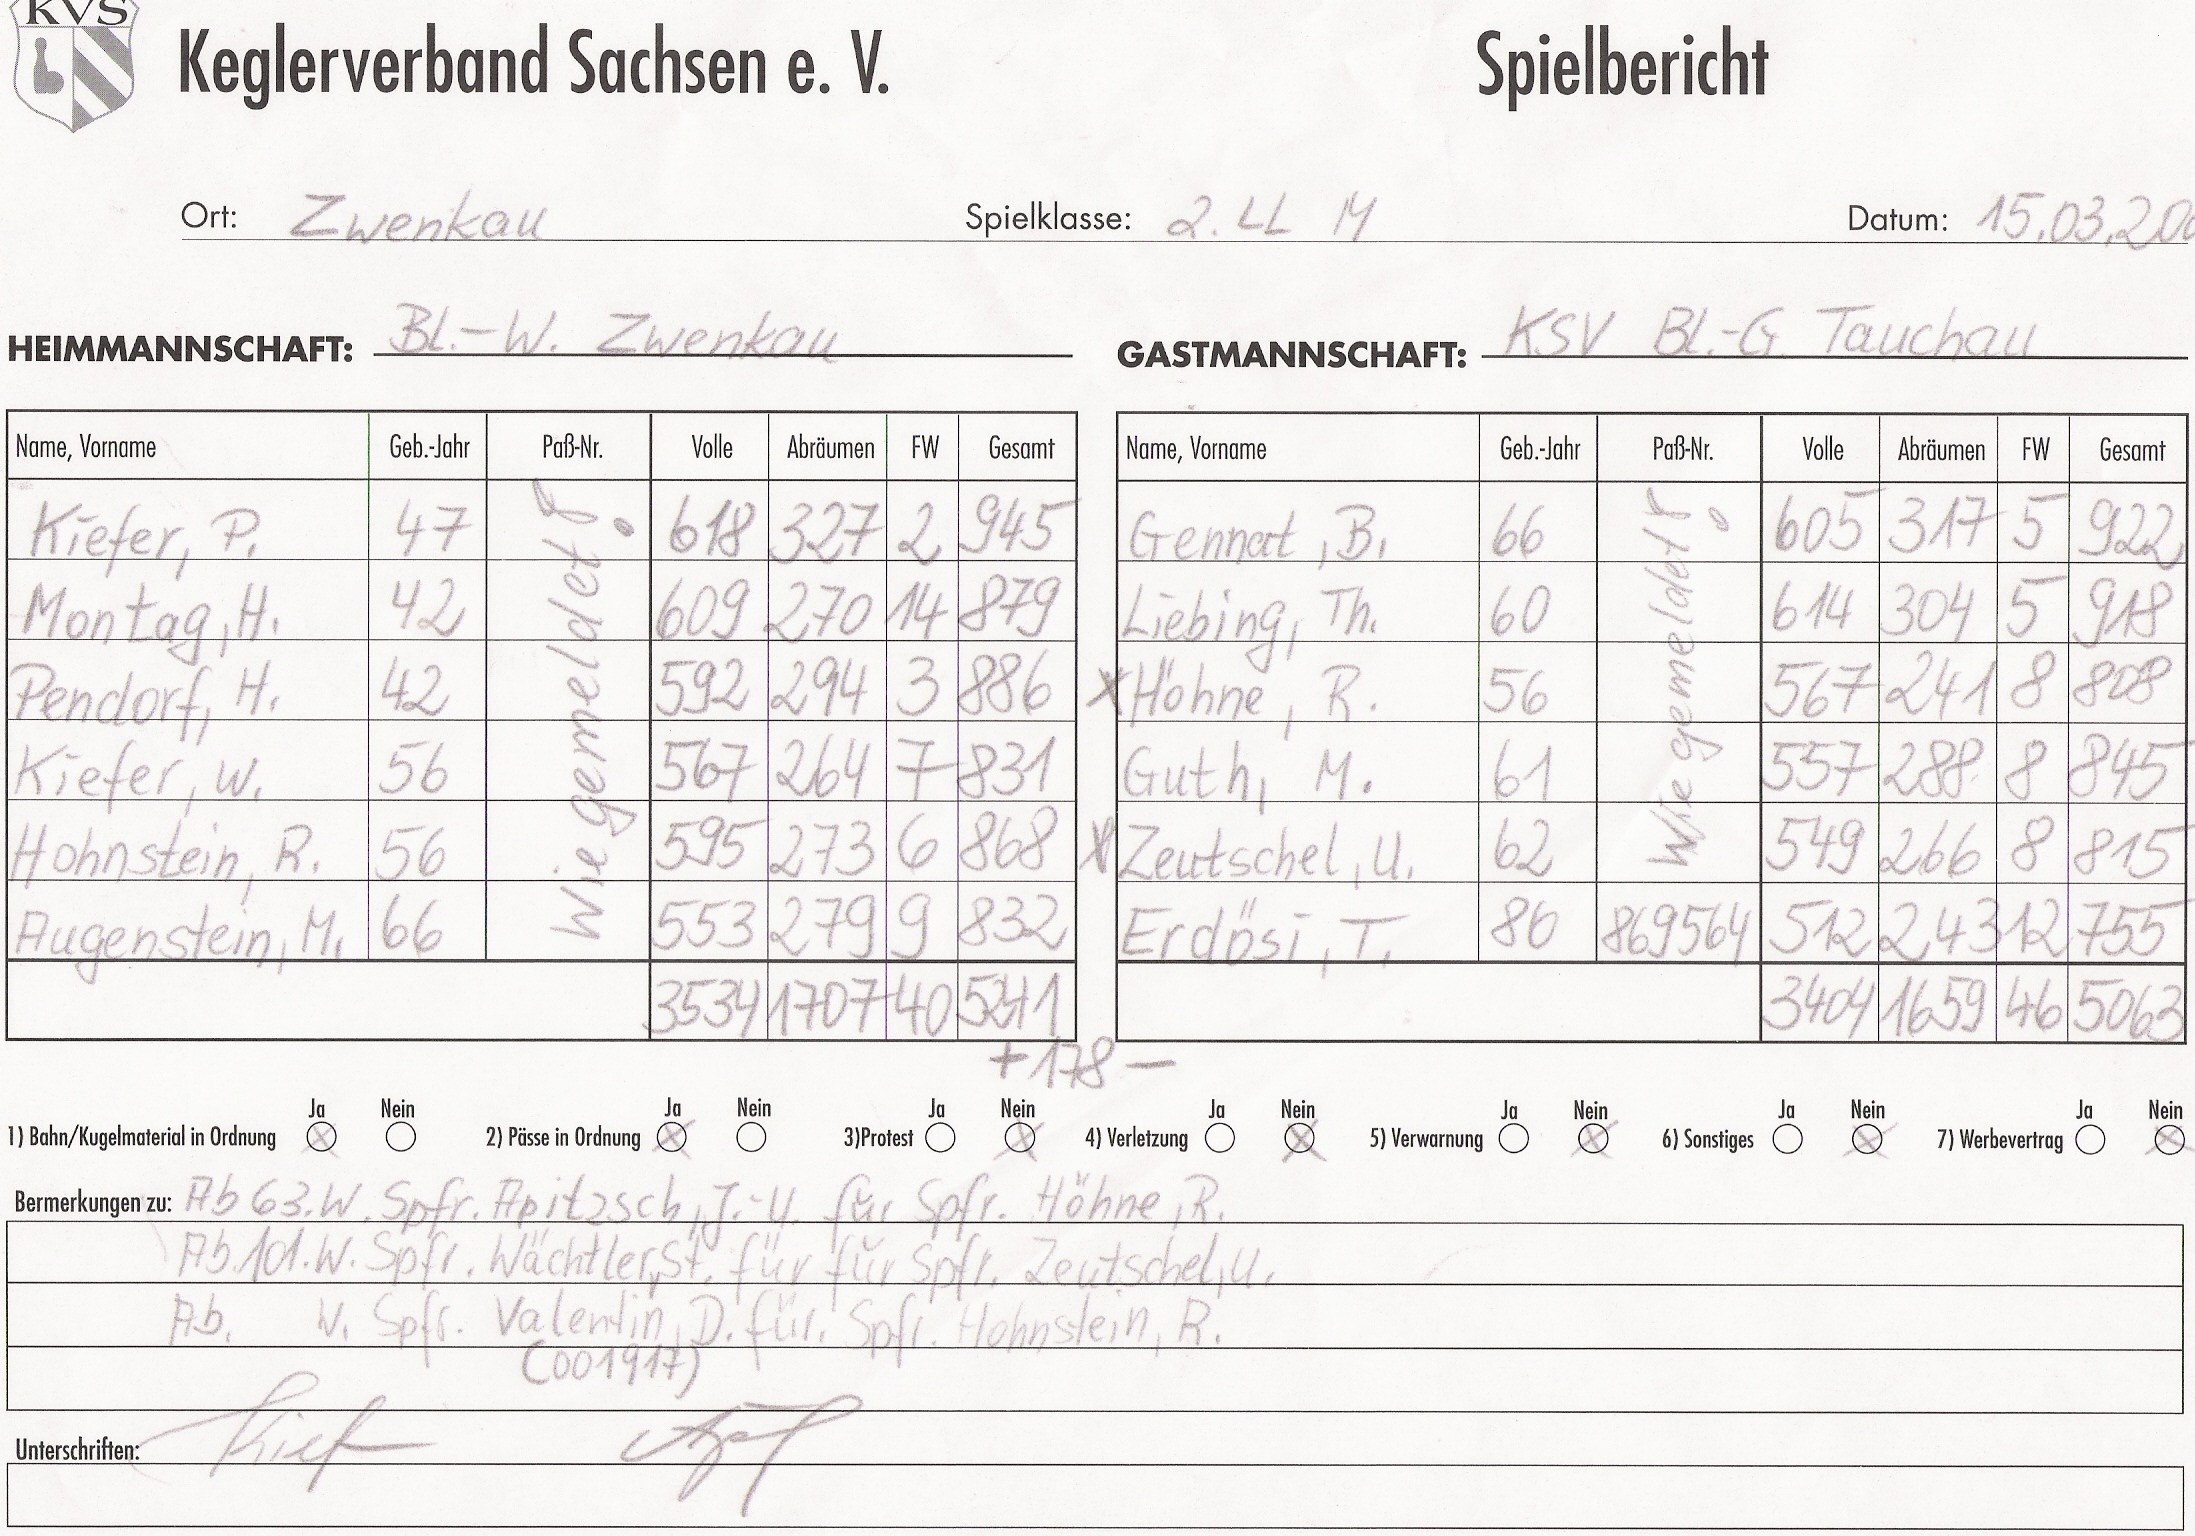 KVS
Keglerverband Sachsen e. V. Spielbericht
Ort: Zwenkau Spielklasse: 2. LL M Datum: 15.03.200
HEIMMANNSCHAFT: Bl.-W. Zwenkau GASTMANNSCHAFT: KSV Bl.-G. Tauchau
Name, Vorname Geb.-Jahr Paß-Nr. Volle Abräumen FW Gesamt Name, Vorname Geb.-Jahr Paß-Nr. Volle Abräumen FW Gesamt
Wie gemeldet! Wie gemeldet!
Kiefer, P. 47 618 327 2 945 Gennat, B. 66 605 317 5 922
Montag, H. 42 609 270 14 879 Liebing, Th. 60 614 304 5 918
Pendorf, H. 42 592 294 3 886 x Höhne, R. 56 567 241 8 808
Kiefer, W. 56 567 264 7 831 Guth, M. 61 557 288 8 845
Hohnstein, R. 56 595 273 6 868 x Zeutschel, U. 62 549 266 8 815
Augenstein, M. 66 553 279 9 832 Erdösi, T. 86 869564 512 243 12 755
3534 1707 40 5241 3404 1659 46 5063
+178 –
Ja Nein Ja Nein Ja Nein Ja Nein Ja Nein Ja Nein Ja Nein
1) Bahn/Kugelmaterial in Ordnung 2) Pässe in Ordnung 3)Protest 4) Verletzung 5) Verwarnung 6) Sonstiges 7) Werbevertrag
Bermerkungen zu: Ab 63.W. Spfr. Apitzsch, J.-U. für Spfr. Höhne, R.
Ab.101.W. Spfr. Wächtler, St. für für Spfr. Zeutschel, U.
Ab. W. Spfr. Valentin, D. für. Spfr. Hohnstein, R.
(001917)
Unterschriften: Kief